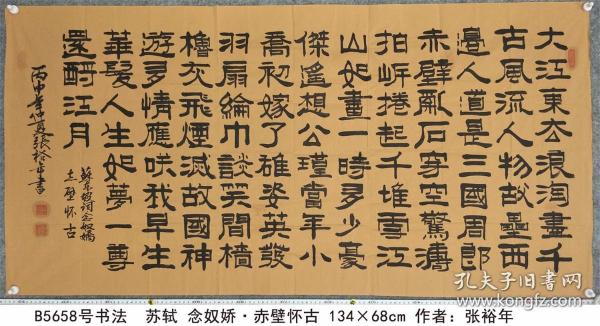 大江東去浪淘盡千
古風流人物故壘西
邊人道是三國周郎
赤壁亂石穿空驚濤
拍岸捲起千堆雪江
山如畫一時多少豪
傑遙想公瑾當年小
喬初嫁了雄姿英發
羽扇綸巾談笑間檣
櫓灰飛煙滅故國神
遊多情應笑我早生
華髮人生如夢一尊
還酹江月
蘇東坡詞念奴嬌
赤壁怀古
丙申年仲夏張裕年書
孔夫子旧书网
B5658号书法 苏轼 念奴娇·赤壁怀古 134×68cm 作者：张裕年